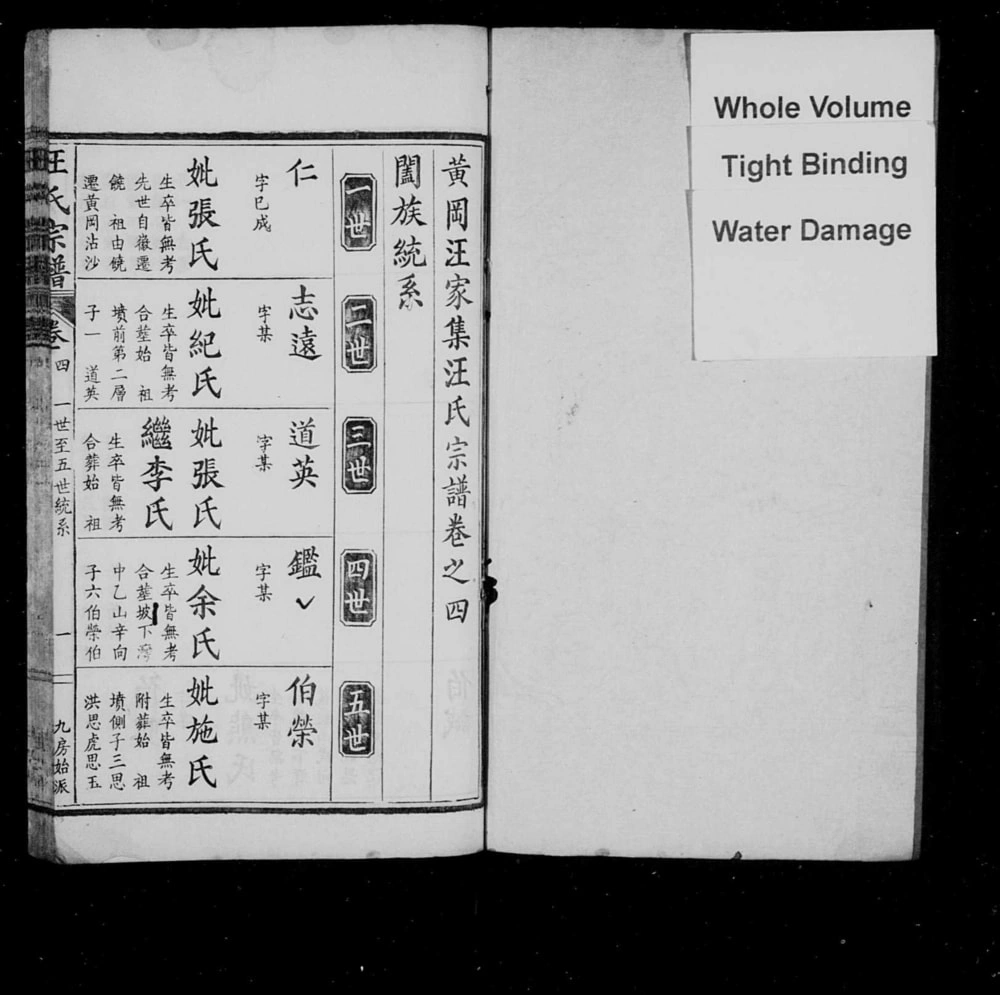 Whole Volume
Tight Binding
Water Damage
黃岡汪家集汪氏宗譜卷之四
闔族統系
一世
仁
字已成
妣張氏
生卒皆無考
先世自徽遷
饒 祖由饒
遷黃岡沽沙
二世
志遠
字某
妣紀氏
生卒皆無考
合塟始 祖
墳前第二層
子一 道英
三世
道英
字某
妣張氏
繼李氏
生卒皆無考
合葬始 祖
四世
鑑
字某
妣余氏
生卒皆無考
合塟坡下灣
中乙山辛向
子六伯榮伯
五世
伯榮
字某
妣施氏
生卒皆無考
附葬始 祖
墳側子三思
洪思虎思玉
汪氏宗譜
卷四
一世至五世統系
一
九房始派